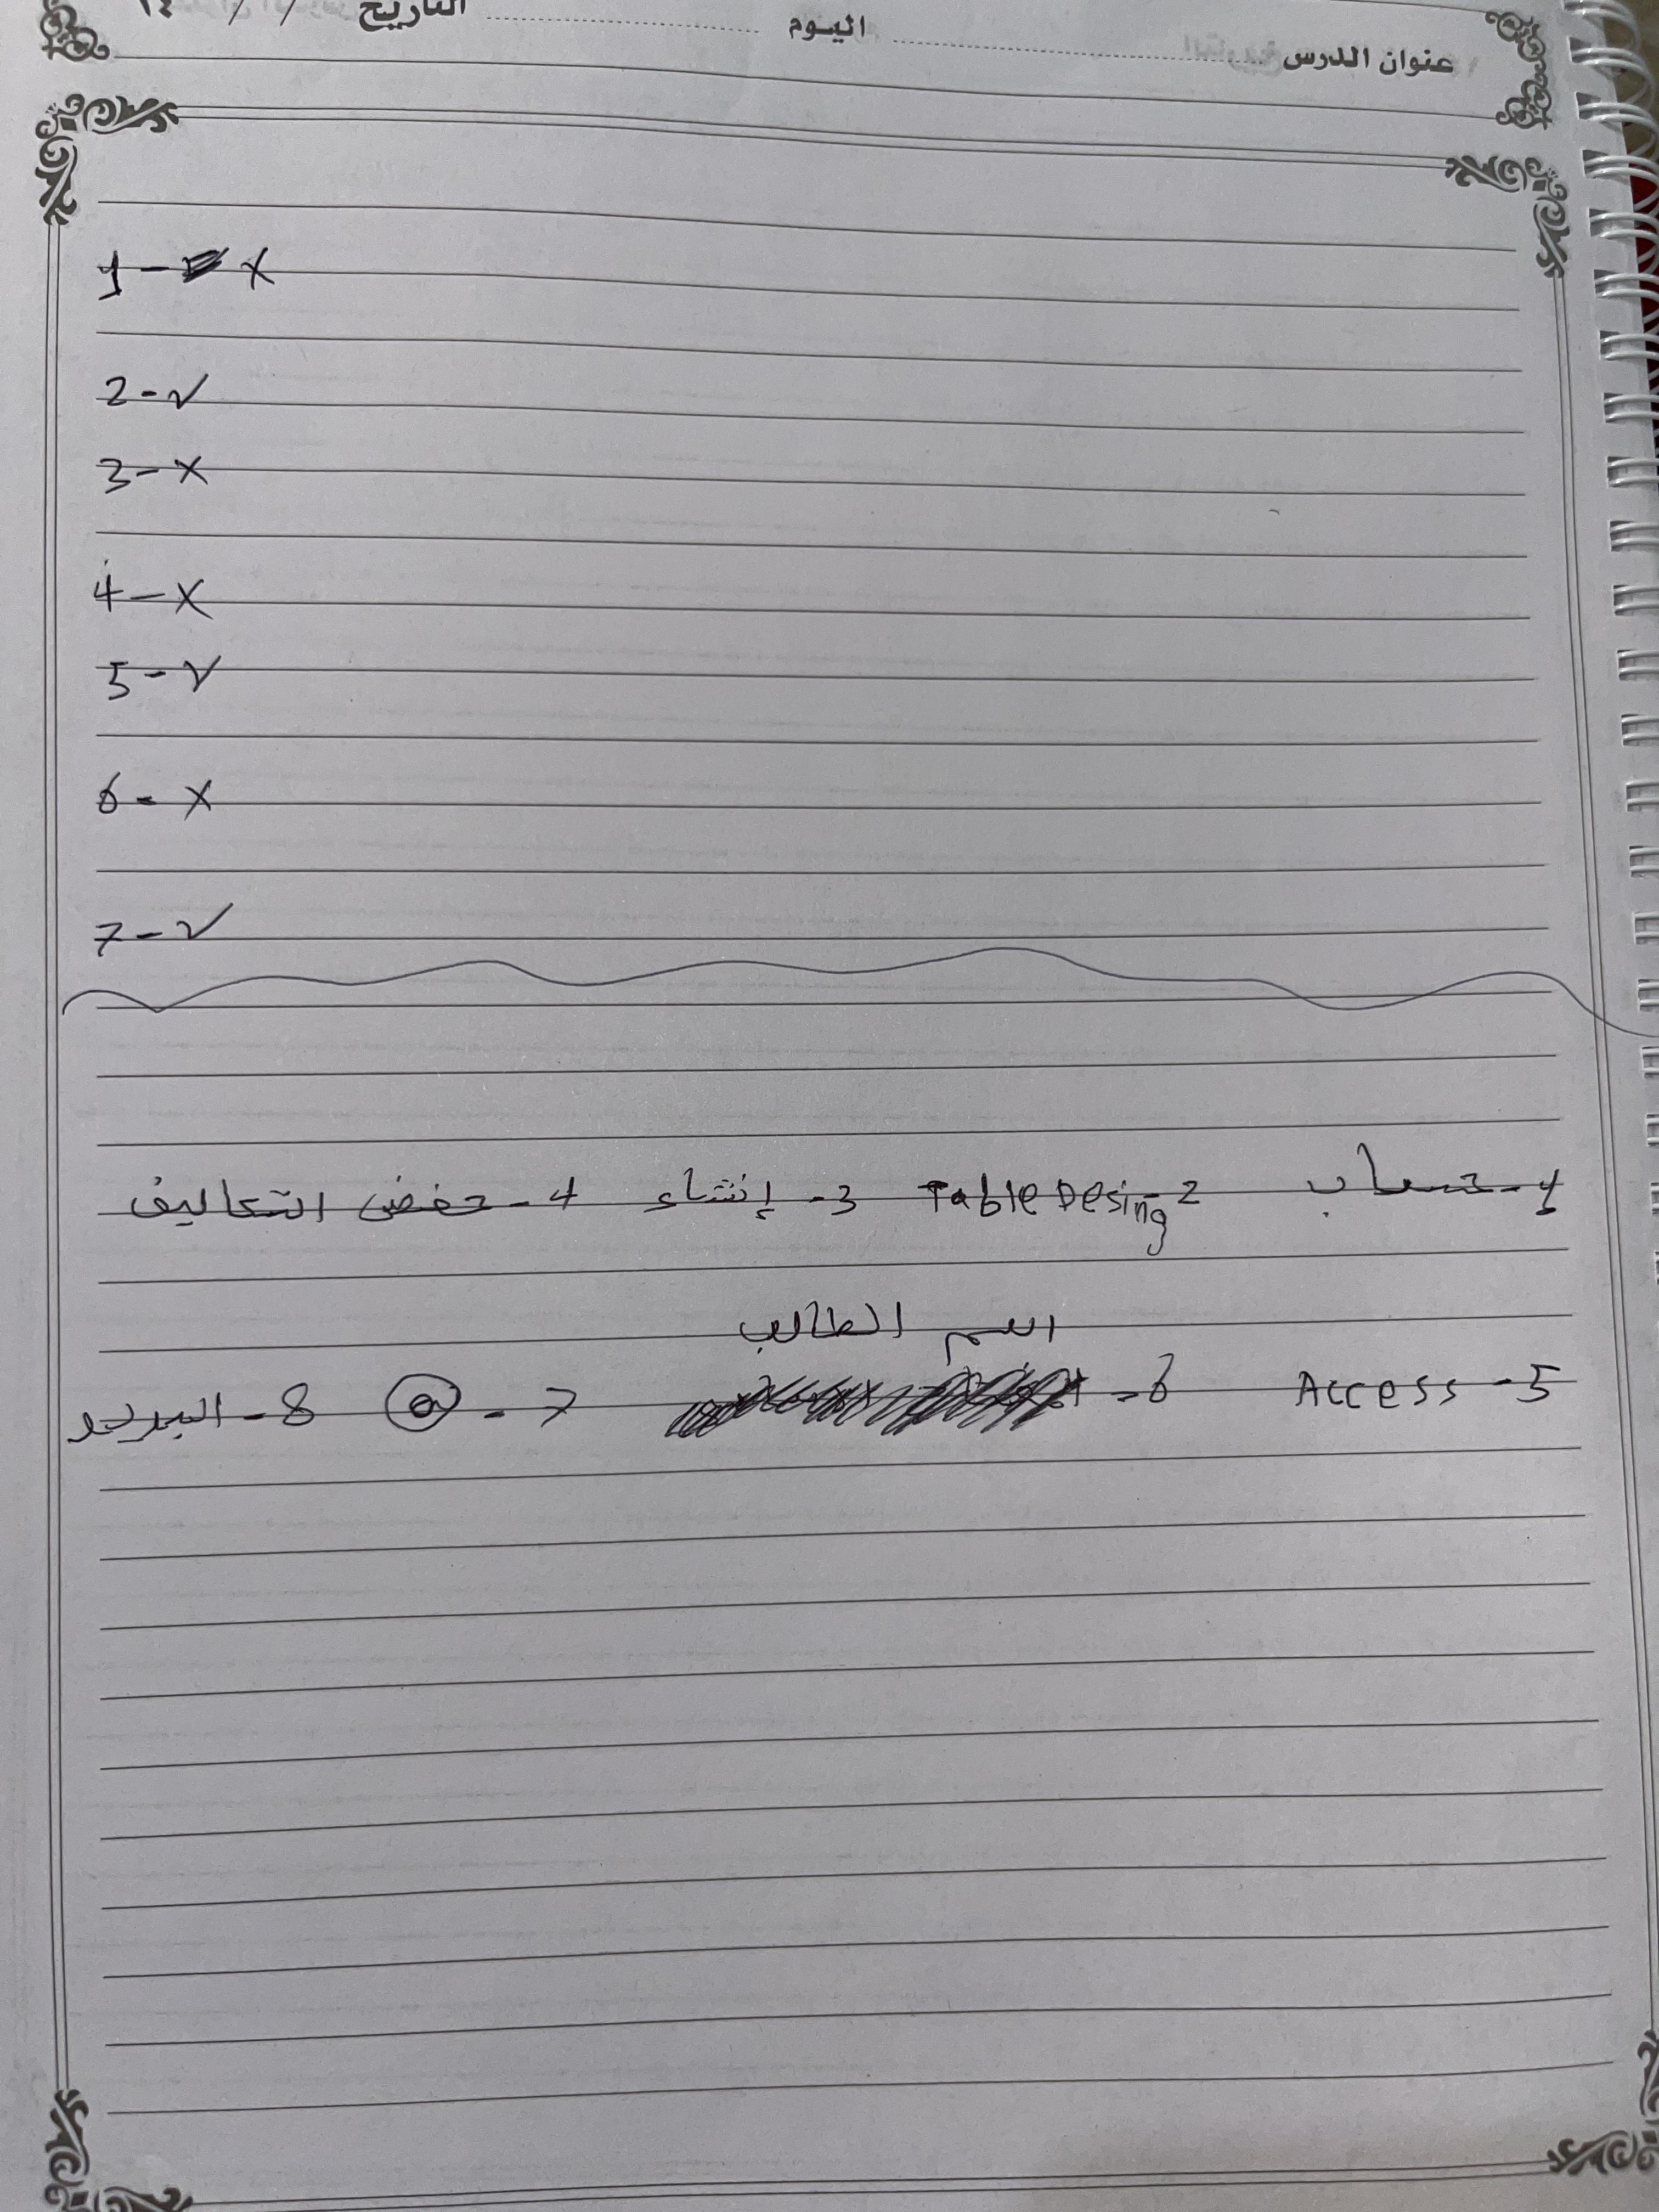 عنوان الدرس اليوم التاريخ / / ١٤
1 - X
2 - ✓
3 - X
4 - X
5 - ✓
6 - X
7 - ✓
1 - حساب 2 - Table Desing 3 - إنشاء 4 - خفض التكاليف
اسم الطالب
5 - Access 6 - 7 - @ 8 - البريد